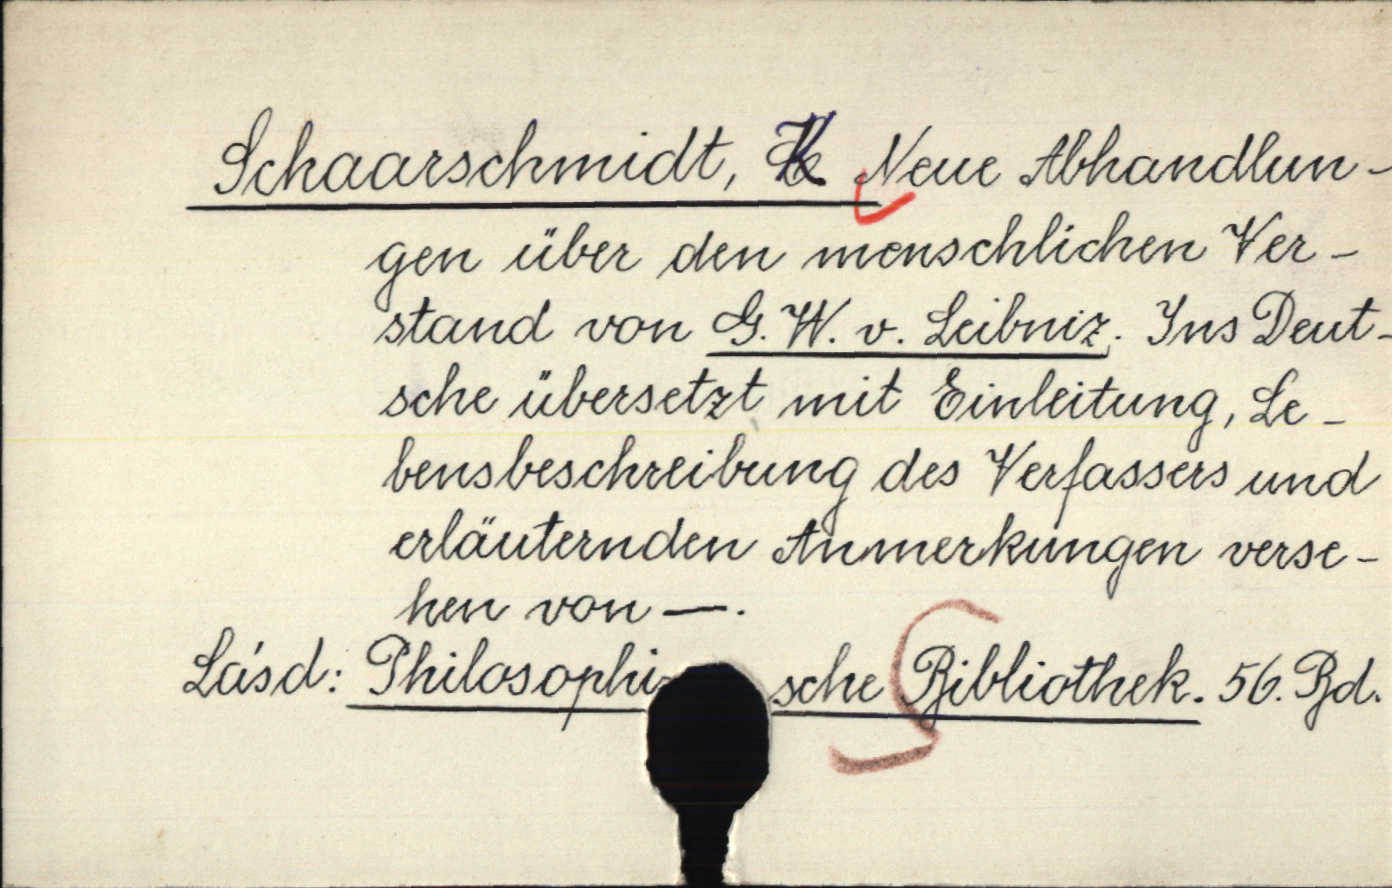 Schaarschmidt, K Neue Abhandlun-
gen über den menschlichen Ver-
stand von G. W. v. Leibniz. Ins Deut-
sche übersetzt mit Einleitung, Le-
bensbeschreibung des Verfassers und
erläuternden Anmerkungen verse-
hen von —.
Lásd: Philosophi- sche Bibliothek. 56. Bd.